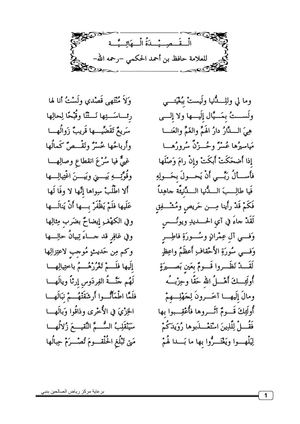 القصيدة الهائية
للعلامة حافظ بن أحمد الحكمي -رحمه الله-
وما لي وللدنيا وليست ببغيتي ولا منتهى قصدي ولست أنا لها
ولست بميال إليها ولا إلى رئاستها نتنا وقبحا لحالها
هي الدار دار الهم والغم والعنا سريع تقضيها قريب زوالها
مياسيرها عسر وحزن سرورها وأرباحها خسر ونقص كمالها
إذا أضحكت أبكت وإن رام وصلها غبي فيا سرع انقطاع وصالها
فأسأل ربي أن يحول بحوله وقوته بيني وبين اغتيالها
فيا طالب الدنيا الدنيئة جاهدا ألا اطلب سواها إنها لا وفا لها
فكم قد رأينا من حريص ومشفق عليها فلم يظفر بها أن ينالها
لقد جاء في آي الحديد ويونس وفي الكهف إيضاح بضرب مثالها
وفي آل عمران وسورة فاطر وفي غافر قد جاء تبيان حالها
وفي سورة الأحقاف أعظم واعظ وكم من حديث موجب لاعتزالها
لقد نظروا قوم بعين بصيرة إليها فلم تغررهم باختيالها
أولئك أهل الله حقا وحزبه لهم جنة الفردوس إرثا ويا لها
ومال إليها آخرون لجهلهم فلما اطمأنوا أرشقتهم نبالها
أولئك قوم آثروها فأعقبوا بها الخزي في الأخرى وذاقوا وبالها
فقل للذين استعذبوها رويدكم سينقلب السم النقيع زلالها
ليلهوا ويغتروا بها ما بدا لهم متى تبلغ الحلقوم تصرم حبالها
برعاية مركز رياض الصالحين بدبي
1